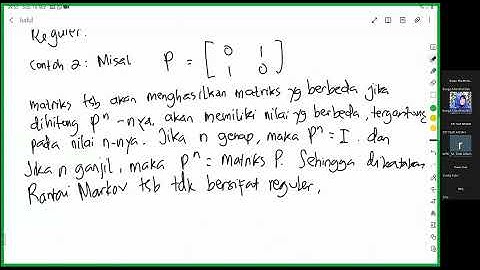 Reguler.
Contoh 2: Misal P = [ 0 1
1 0 ]
matriks tsb akan menghasilkan matriks yg berbeda jika
dihitung Pⁿ -nya, akan memiliki nilai yg berbeda, tergantung
pada nilai n-nya. Jika n genap, maka Pⁿ = I. dan
Jika n ganjil, maka Pⁿ = matriks P. Sehingga dikatakan
Rantai Markov tsb tdk bersifat reguler,